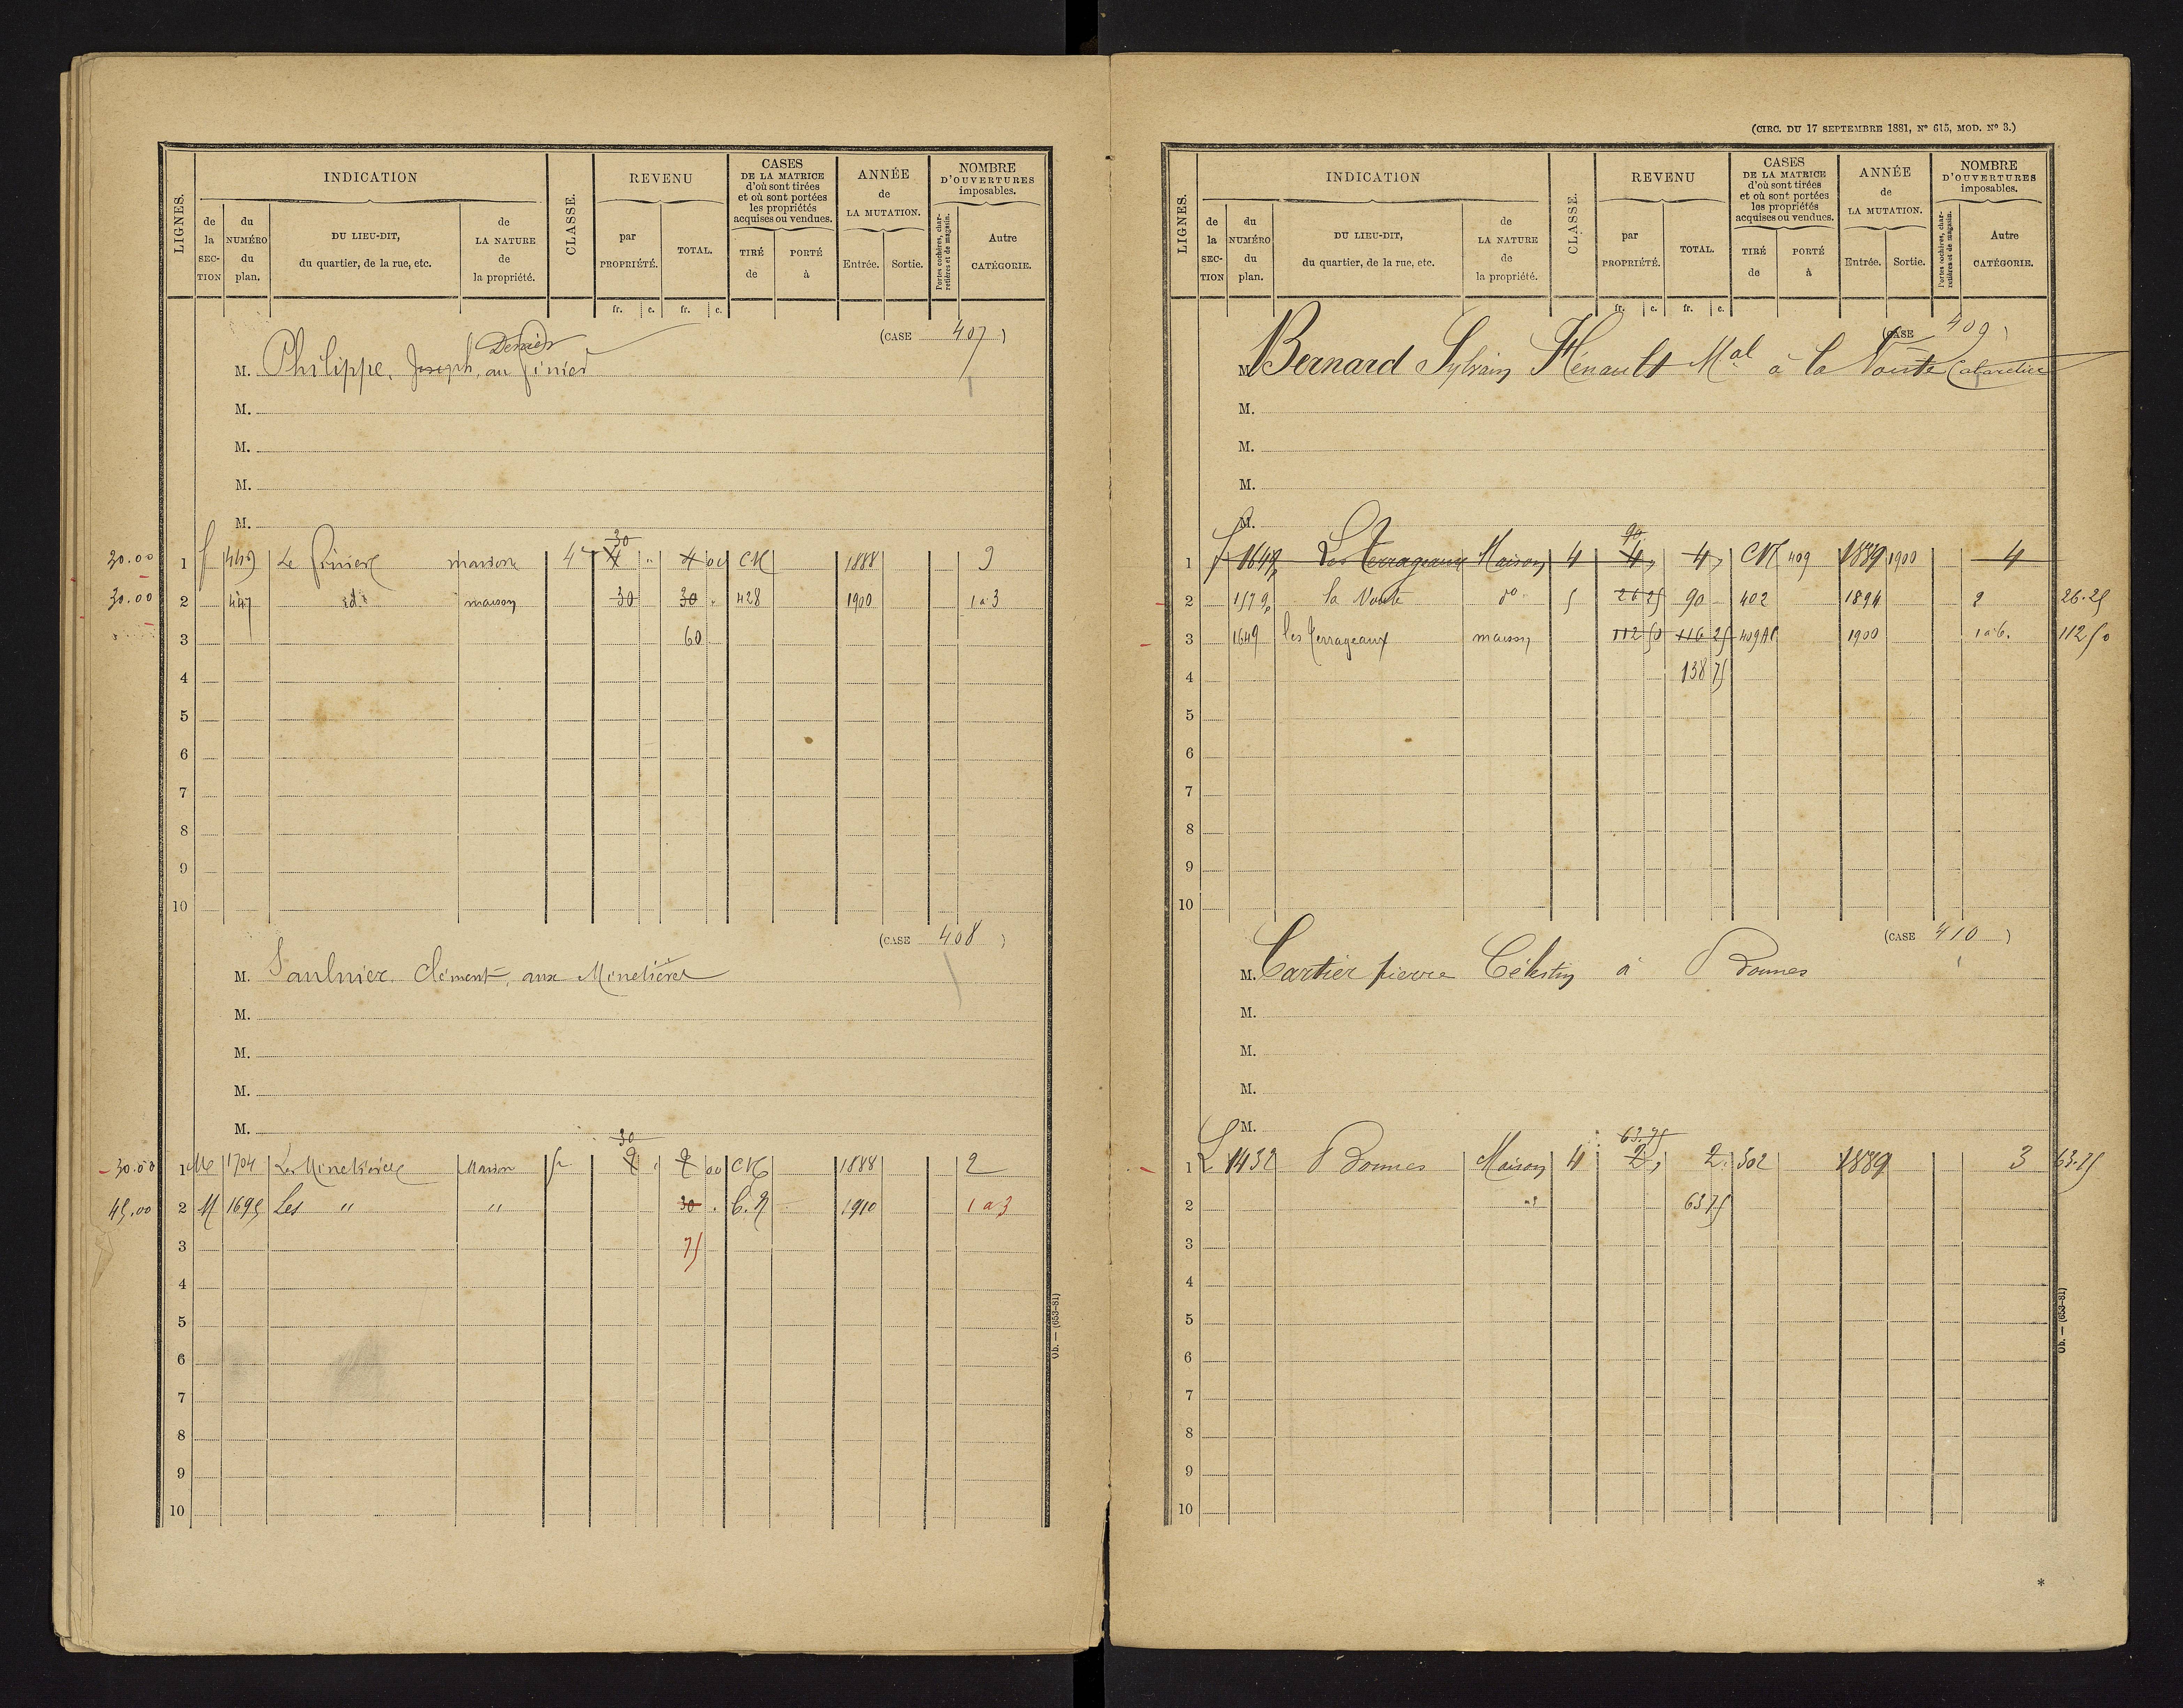 LIGNES.
INDICATION
de la SECTION
du NUMÉRO du plan.
DU LIEU-DIT, du quartier, de la rue, etc.
de LA NATURE de la propriété.
CLASSE.
REVENU
par PROPRIÉTÉ.
TOTAL.
fr. c. fr. c.
CASES DE LA MATRICE d'où sont tirées et où sont portées les propriétés acquises ou vendues.
TIRÉ de
PORTÉ à
ANNÉE de LA MUTATION.
Entrée. Sortie.
NOMBRE D'OUVERTURES imposables.
Portes cochères, charretières et de magasin.
Autre CATÉGORIE.
(CASE 407)
M. Philippe, Joseph, au Pinier
M.
M.
M.
M.
30
1 449 Le Pinier maison 4 4 " 4 00 CN 1888 3
30.00 2 447 id maison 30 30 . 428 1900 1 à 3
3 60
4
5
6
7
8
9
10
(CASE 408)
M. Saulnier, Clément, aux Minetières
M.
M.
M.
M.
30
30.00 1 M 1704 Les Minetières Maison 2 2 00 CN 1888 2
45.00 2 M 1695 Les " " 30 . C.N 1910 1 à 3
3 75
4
5
6
7
8
9
10
Ob. — (653-81)
(CIRC. DU 17 SEPTEMBRE 1881, N° 615, MOD. N° 3.)
LIGNES.
INDICATION
de la SECTION
du NUMÉRO du plan.
DU LIEU-DIT, du quartier, de la rue, etc.
de LA NATURE de la propriété.
CLASSE.
REVENU
par PROPRIÉTÉ.
TOTAL.
fr. c. fr. c.
CASES DE LA MATRICE d'où sont tirées et où sont portées les propriétés acquises ou vendues.
TIRÉ de
PORTÉ à
ANNÉE de LA MUTATION.
Entrée. Sortie.
NOMBRE D'OUVERTURES imposables.
Portes cochères, charretières et de magasin.
Autre CATÉGORIE.
(CASE 409)
M. Bernard Sylvain Hénault Mal à la Voute Cabaretier
M.
M.
M.
M.
90
1 1649 Les Terrageaux Maison 4 4 " 4 " CN 409 1889 1900 4
2 1579 la Voute do 5 26 25 90 402 1894 2 26.25
3 1649 les Terrageaux maison 112 50 116 25 409 1900 1 à 6. 112 50
4 138 75
5
6
7
8
9
10
(CASE 410)
M. Cartier pierre Célestin à Bonnes
M.
M.
M.
M.
63.75
1 L 1432 Bonnes Maison 4 2 " 2 302 1889 3 63.75
2 63 75
3
4
5
6
7
8
9
10
Ob. — (653-81)
*